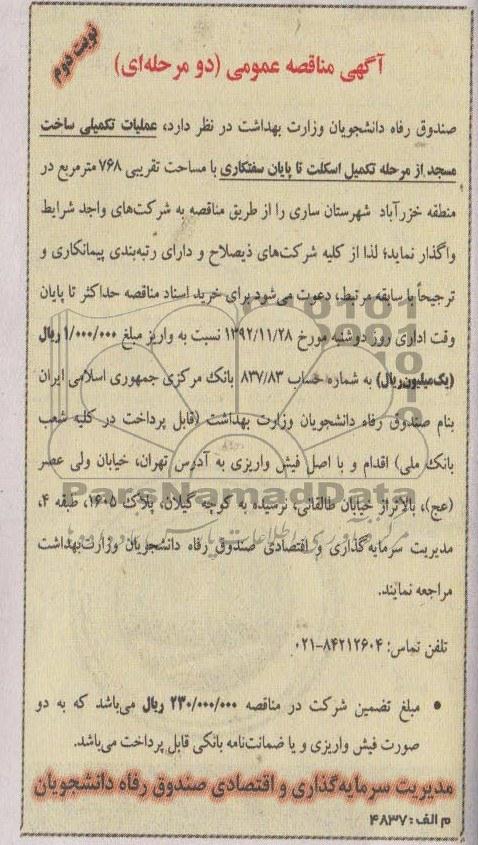 نوبت دوم
آگهی مناقصه عمومی (دو مرحله‌ای)
صندوق رفاه دانشجویان وزارت بهداشت در نظر دارد، عملیات تکمیلی ساخت
مسجد از مرحله تکمیل اسکلت تا پایان سفتکاری با مساحت تقریبی ۷۶۸ مترمربع در
منطقه خزرآباد شهرستان ساری را از طریق مناقصه به شرکت‌های واجد شرایط
واگذار نماید؛ لذا از کلیه شرکت‌های ذیصلاح و دارای رتبه‌بندی پیمانکاری و
ترجیحاً با سابقه مرتبط، دعوت می‌شود برای خرید اسناد مناقصه حداکثر تا پایان
وقت اداری روز دوشنبه مورخ ۱۳۹۲/۱۱/۲۸ نسبت به واریز مبلغ ۱/۰۰۰/۰۰۰ ریال
(یک‌میلیون‌ریال) به شماره حساب ۸۳۷/۸۳ بانک مرکزی جمهوری اسلامی ایران
بنام صندوق رفاه دانشجویان وزارت بهداشت (قابل پرداخت در کلیه شعب
بانک ملی) اقدام و با اصل فیش واریزی به آدرس تهران، خیابان ولی عصر
(عج)، بالاتراز خیابان طالقانی، نرسیده به کوچه گیلان، پلاک ۱۶۰۵، طبقه ۴،
مدیریت سرمایه‌گذاری و اقتصادی صندوق رفاه دانشجویان وزارت‌بهداشت
مراجعه نمایند.
تلفن تماس: ۸۴۲۱۲۶۰۴-۰۲۱
• مبلغ تضمین شرکت در مناقصه ۲۳۰/۰۰۰/۰۰۰ ریال می‌باشد که به دو
صورت فیش واریزی و یا ضمانت‌نامه بانکی قابل پرداخت می‌باشد.
مدیریت سرمایه‌گذاری و اقتصادی صندوق رفاه دانشجویان
م الف: ۴۸۳۷
ParsNamadData